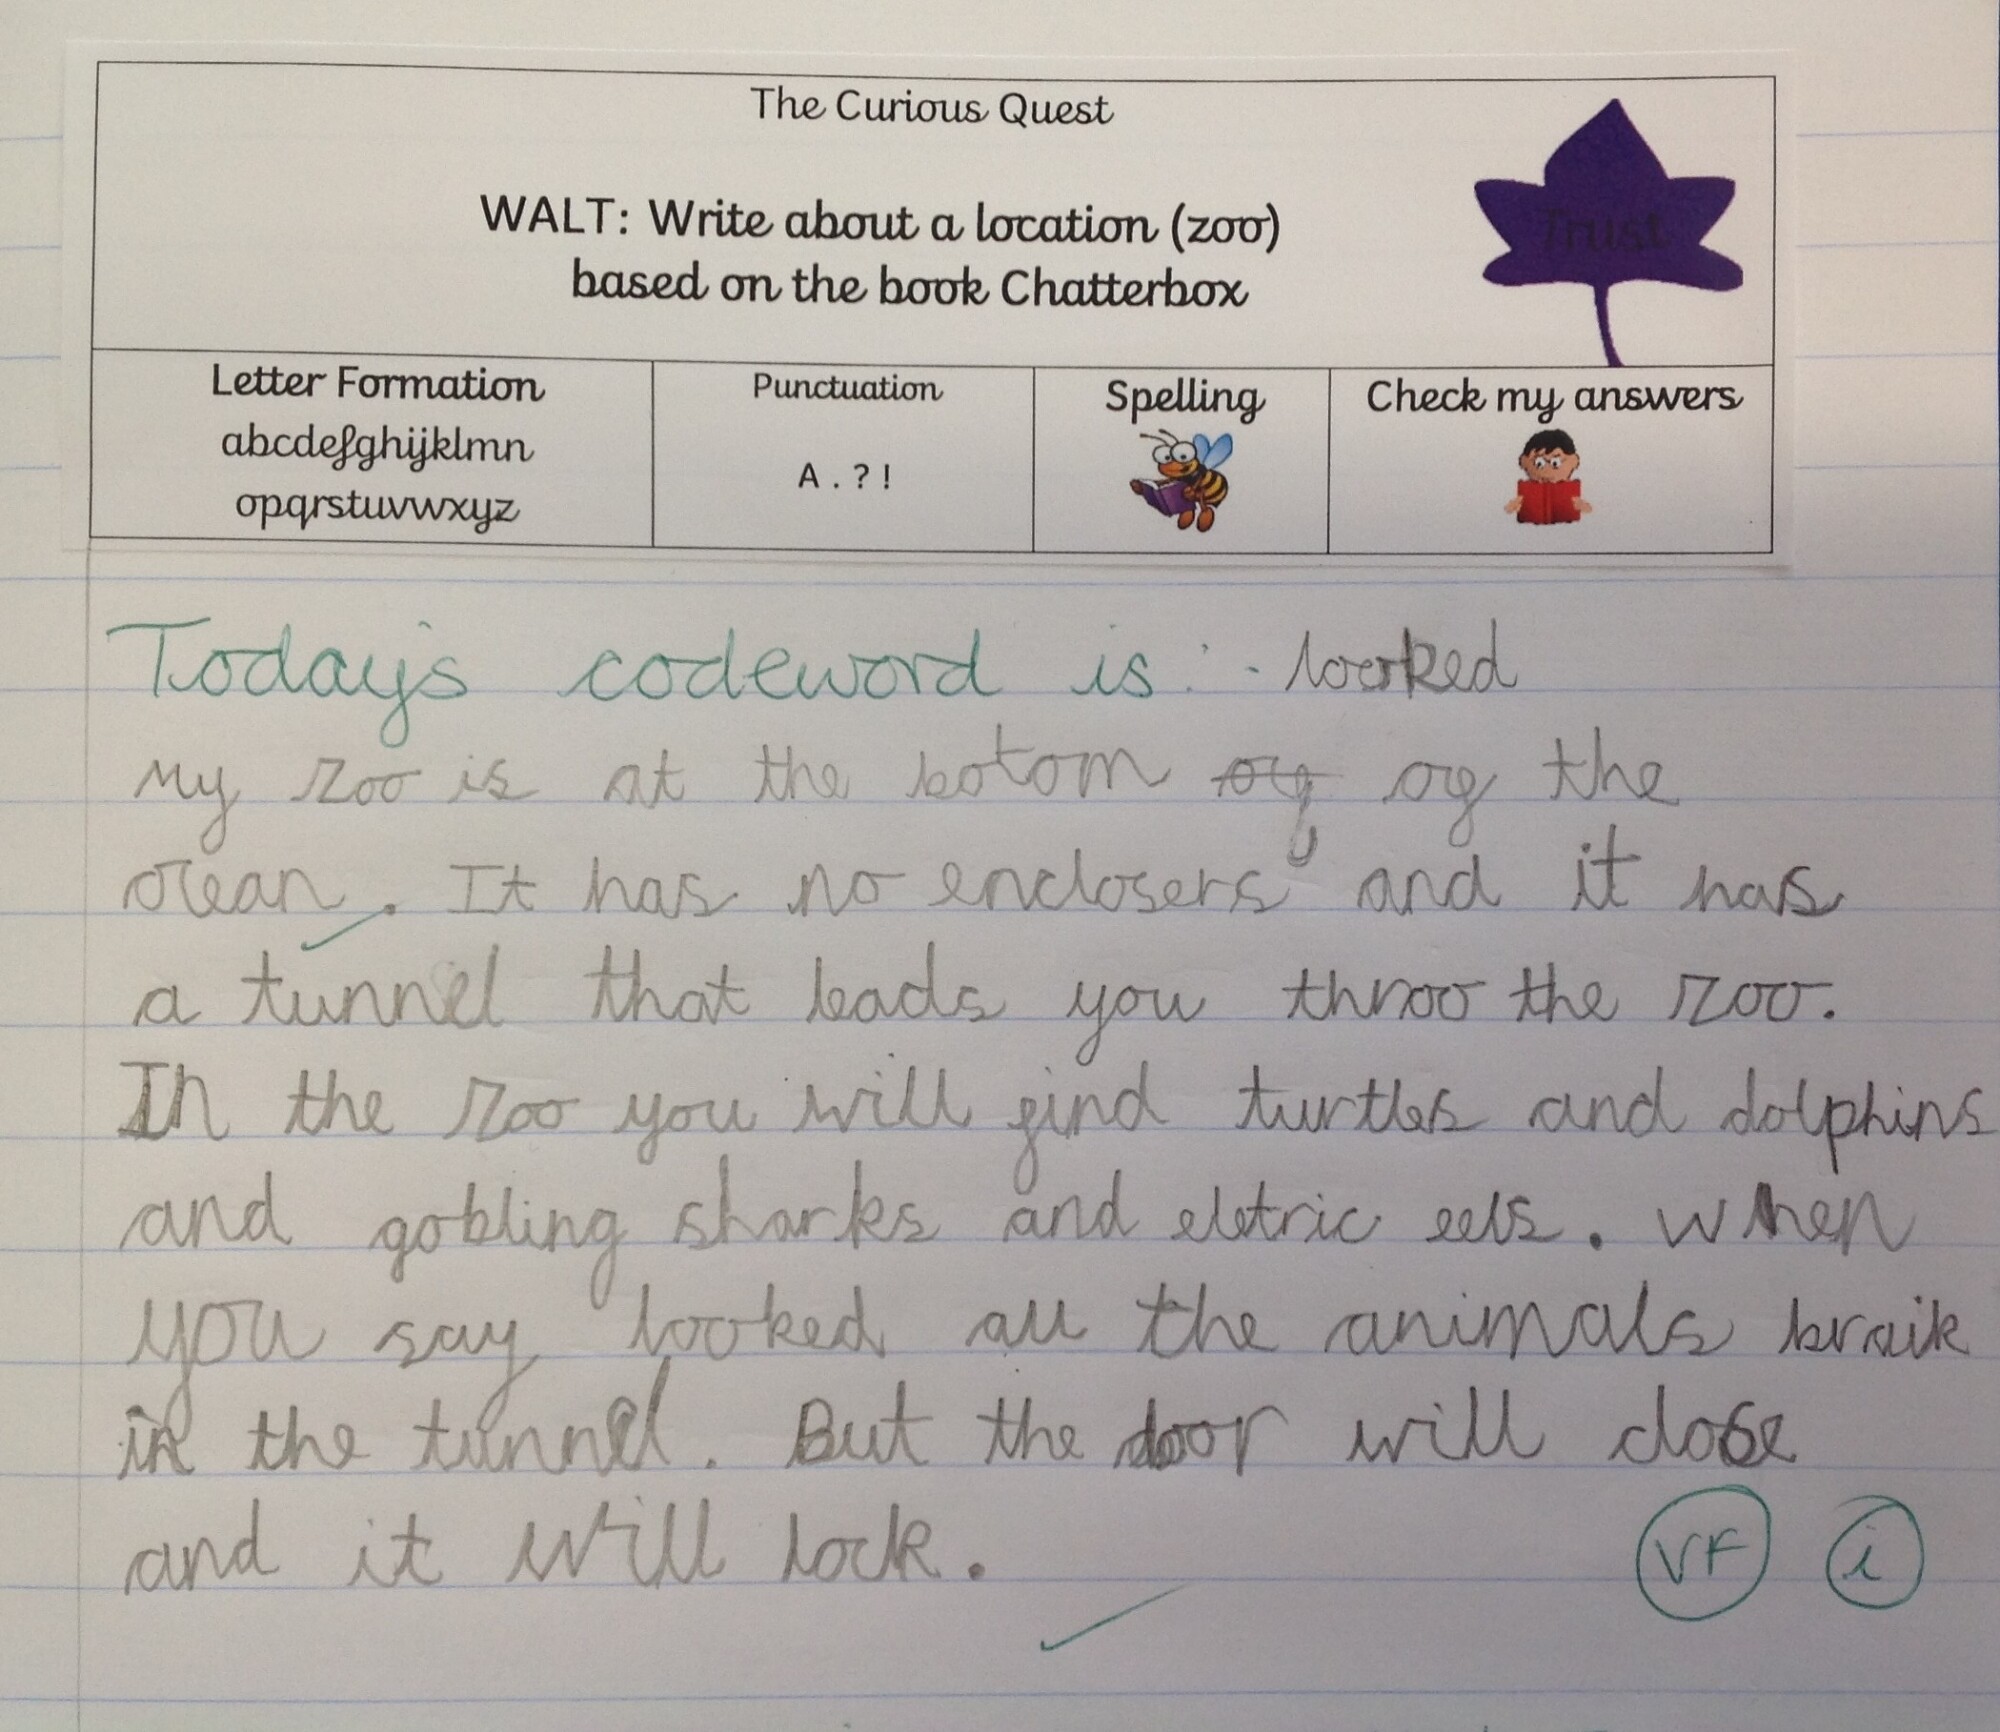 The Curious Quest
WALT: Write about a location (zoo)
based on the book Chatterbox
Trust
Letter Formation
abcdefghijklmn
opqrstuvwxyz
Punctuation
A . ? !
Spelling
Check my answers
Today's codeword is :- looked
My zoo is at the botom of of the
ocean. It has no enclosers and it has
a tunnel that leads you throo the zoo.
In the zoo you will find turtles and dolphins
and gobling sharks and eletric eels. When
you say looked all the animals braik
in the tunnel. But the door will close
and it will lock.
VF i